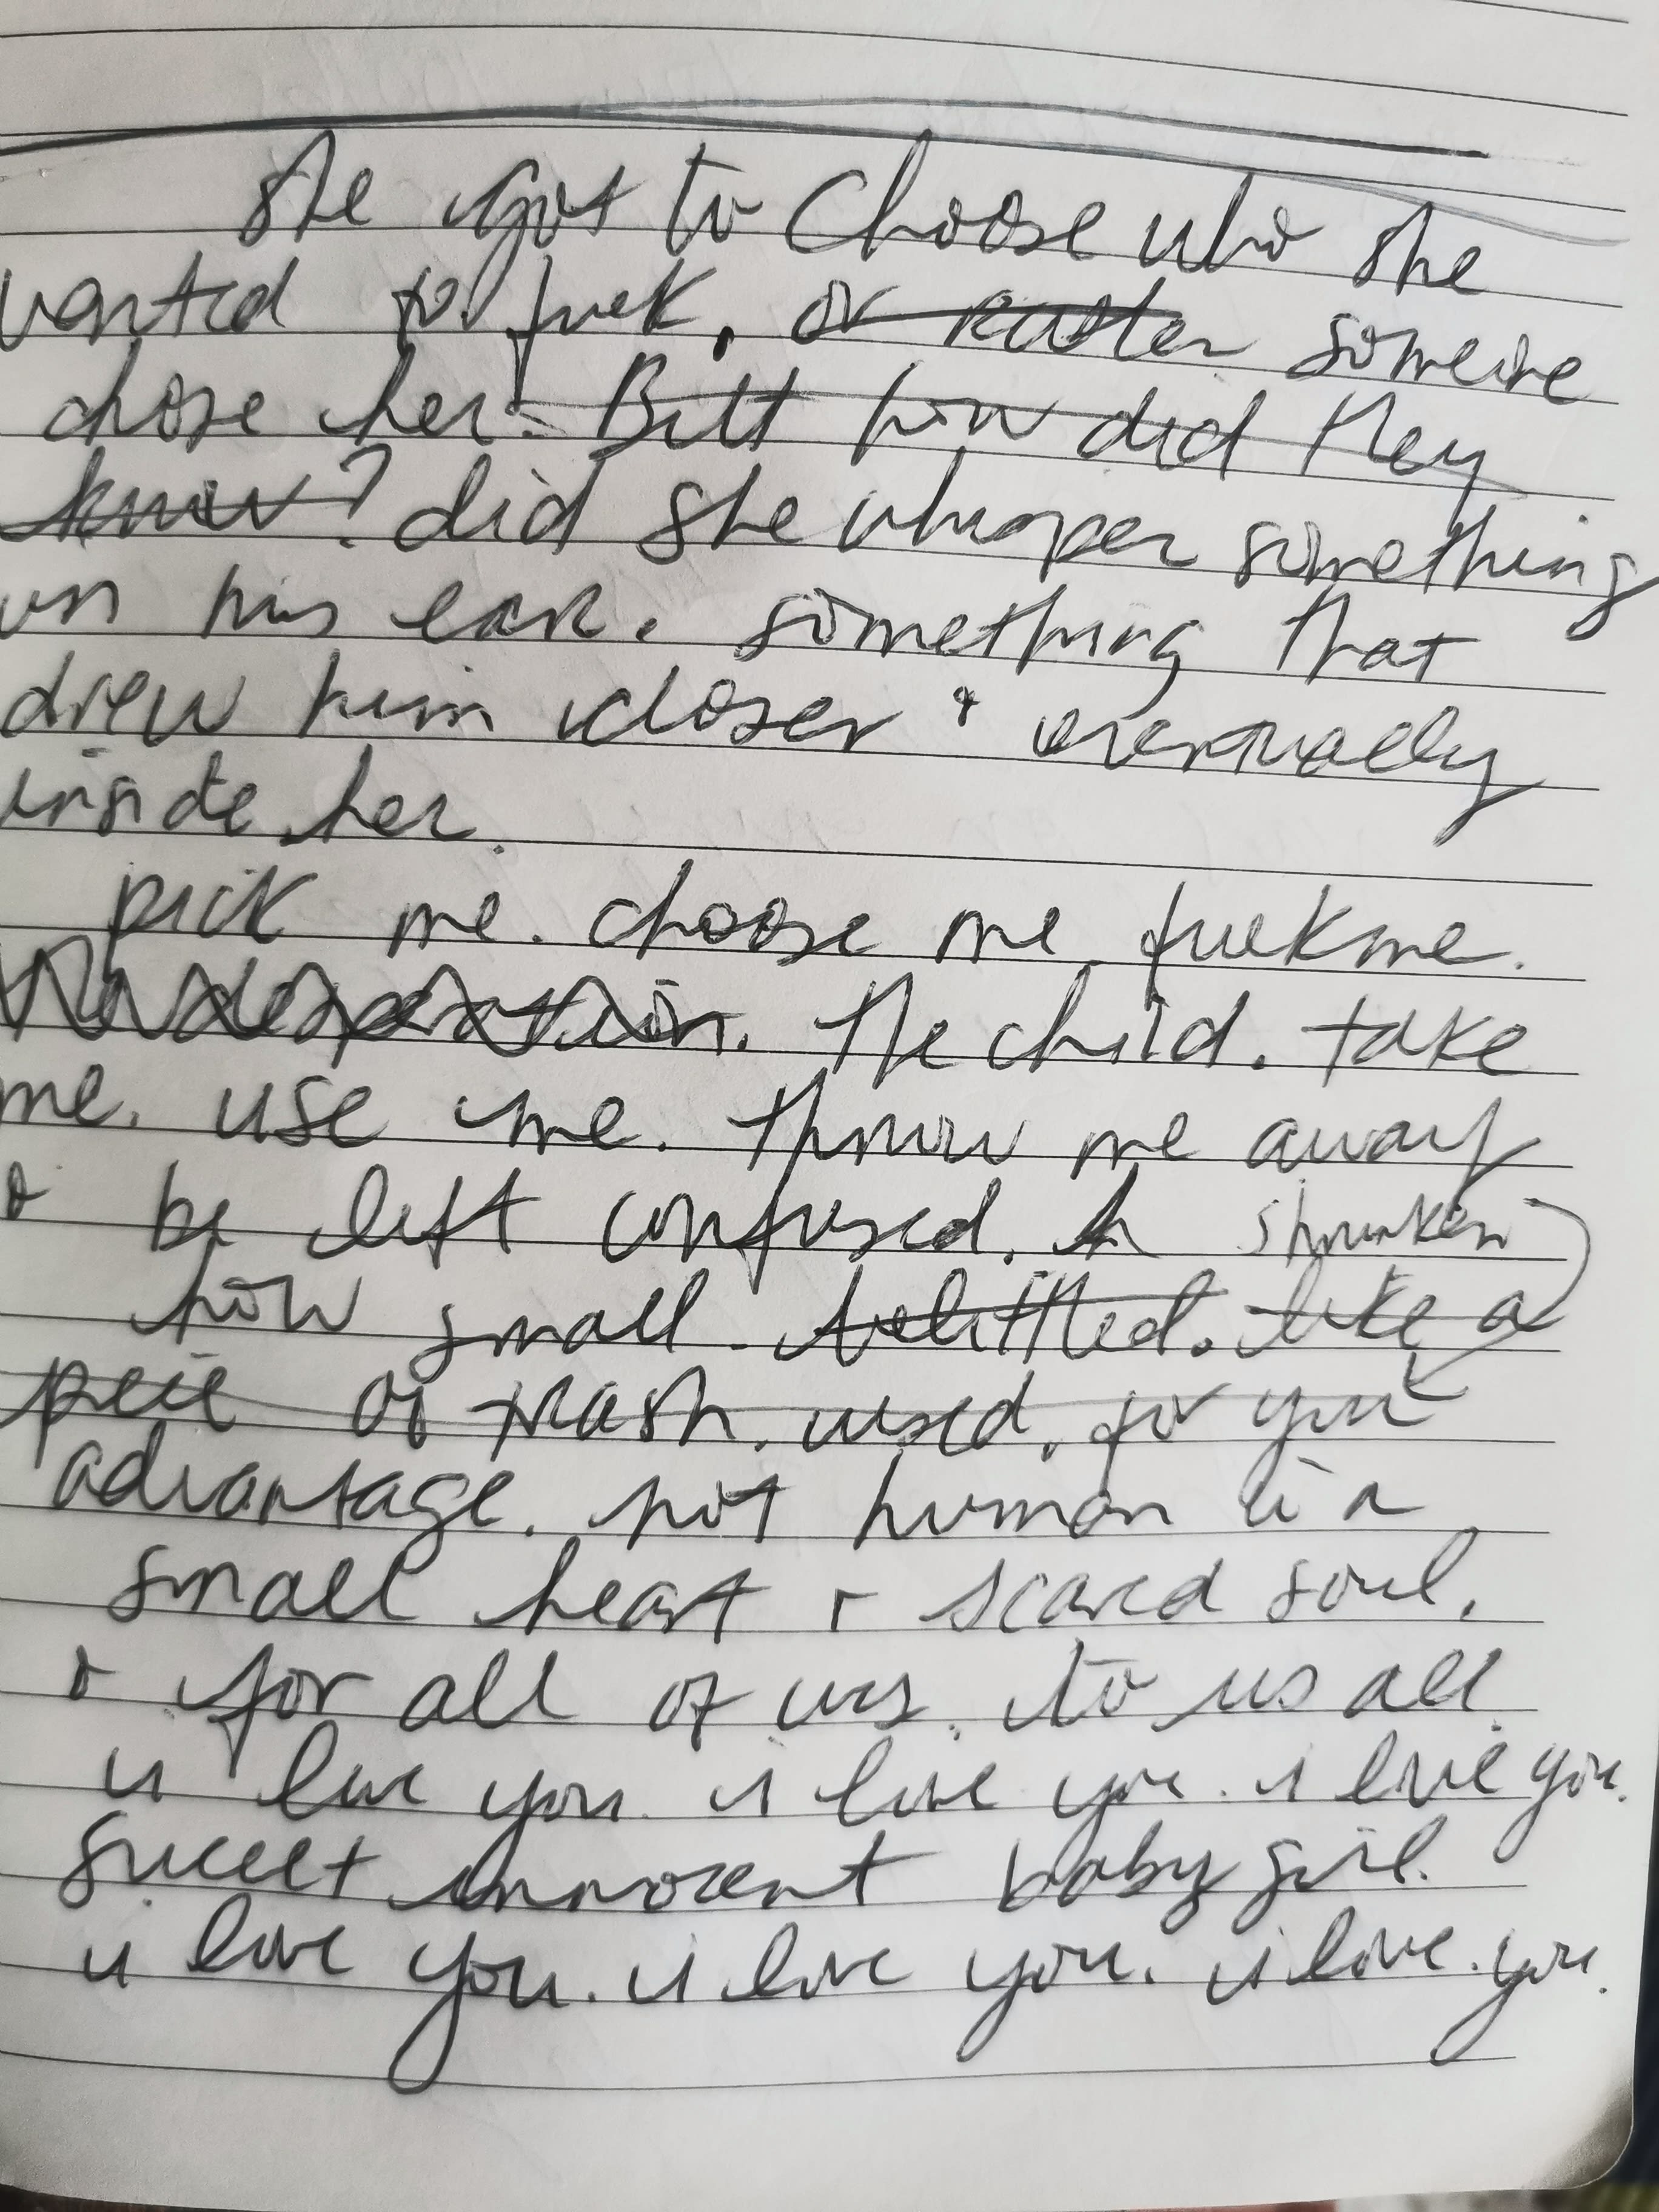 She got to choose who she
wanted to fuck, or rather someone
chose her. But how did they
know? did she whisper something
in his ear. something that
drew him closer & eventually
inside her.
pick me. choose me. fuck me.
desperation. The child. take
me. use me. throw me away
& be left confused. shrunken
how small. belittled. like a
peice of trash. used. for your
advantage. not human w a
small heart & scared soul.
& for all of us. to us all.
i love you. i love you. i love you.
sweet innocent baby girl.
i love you. i love you. i love. you.